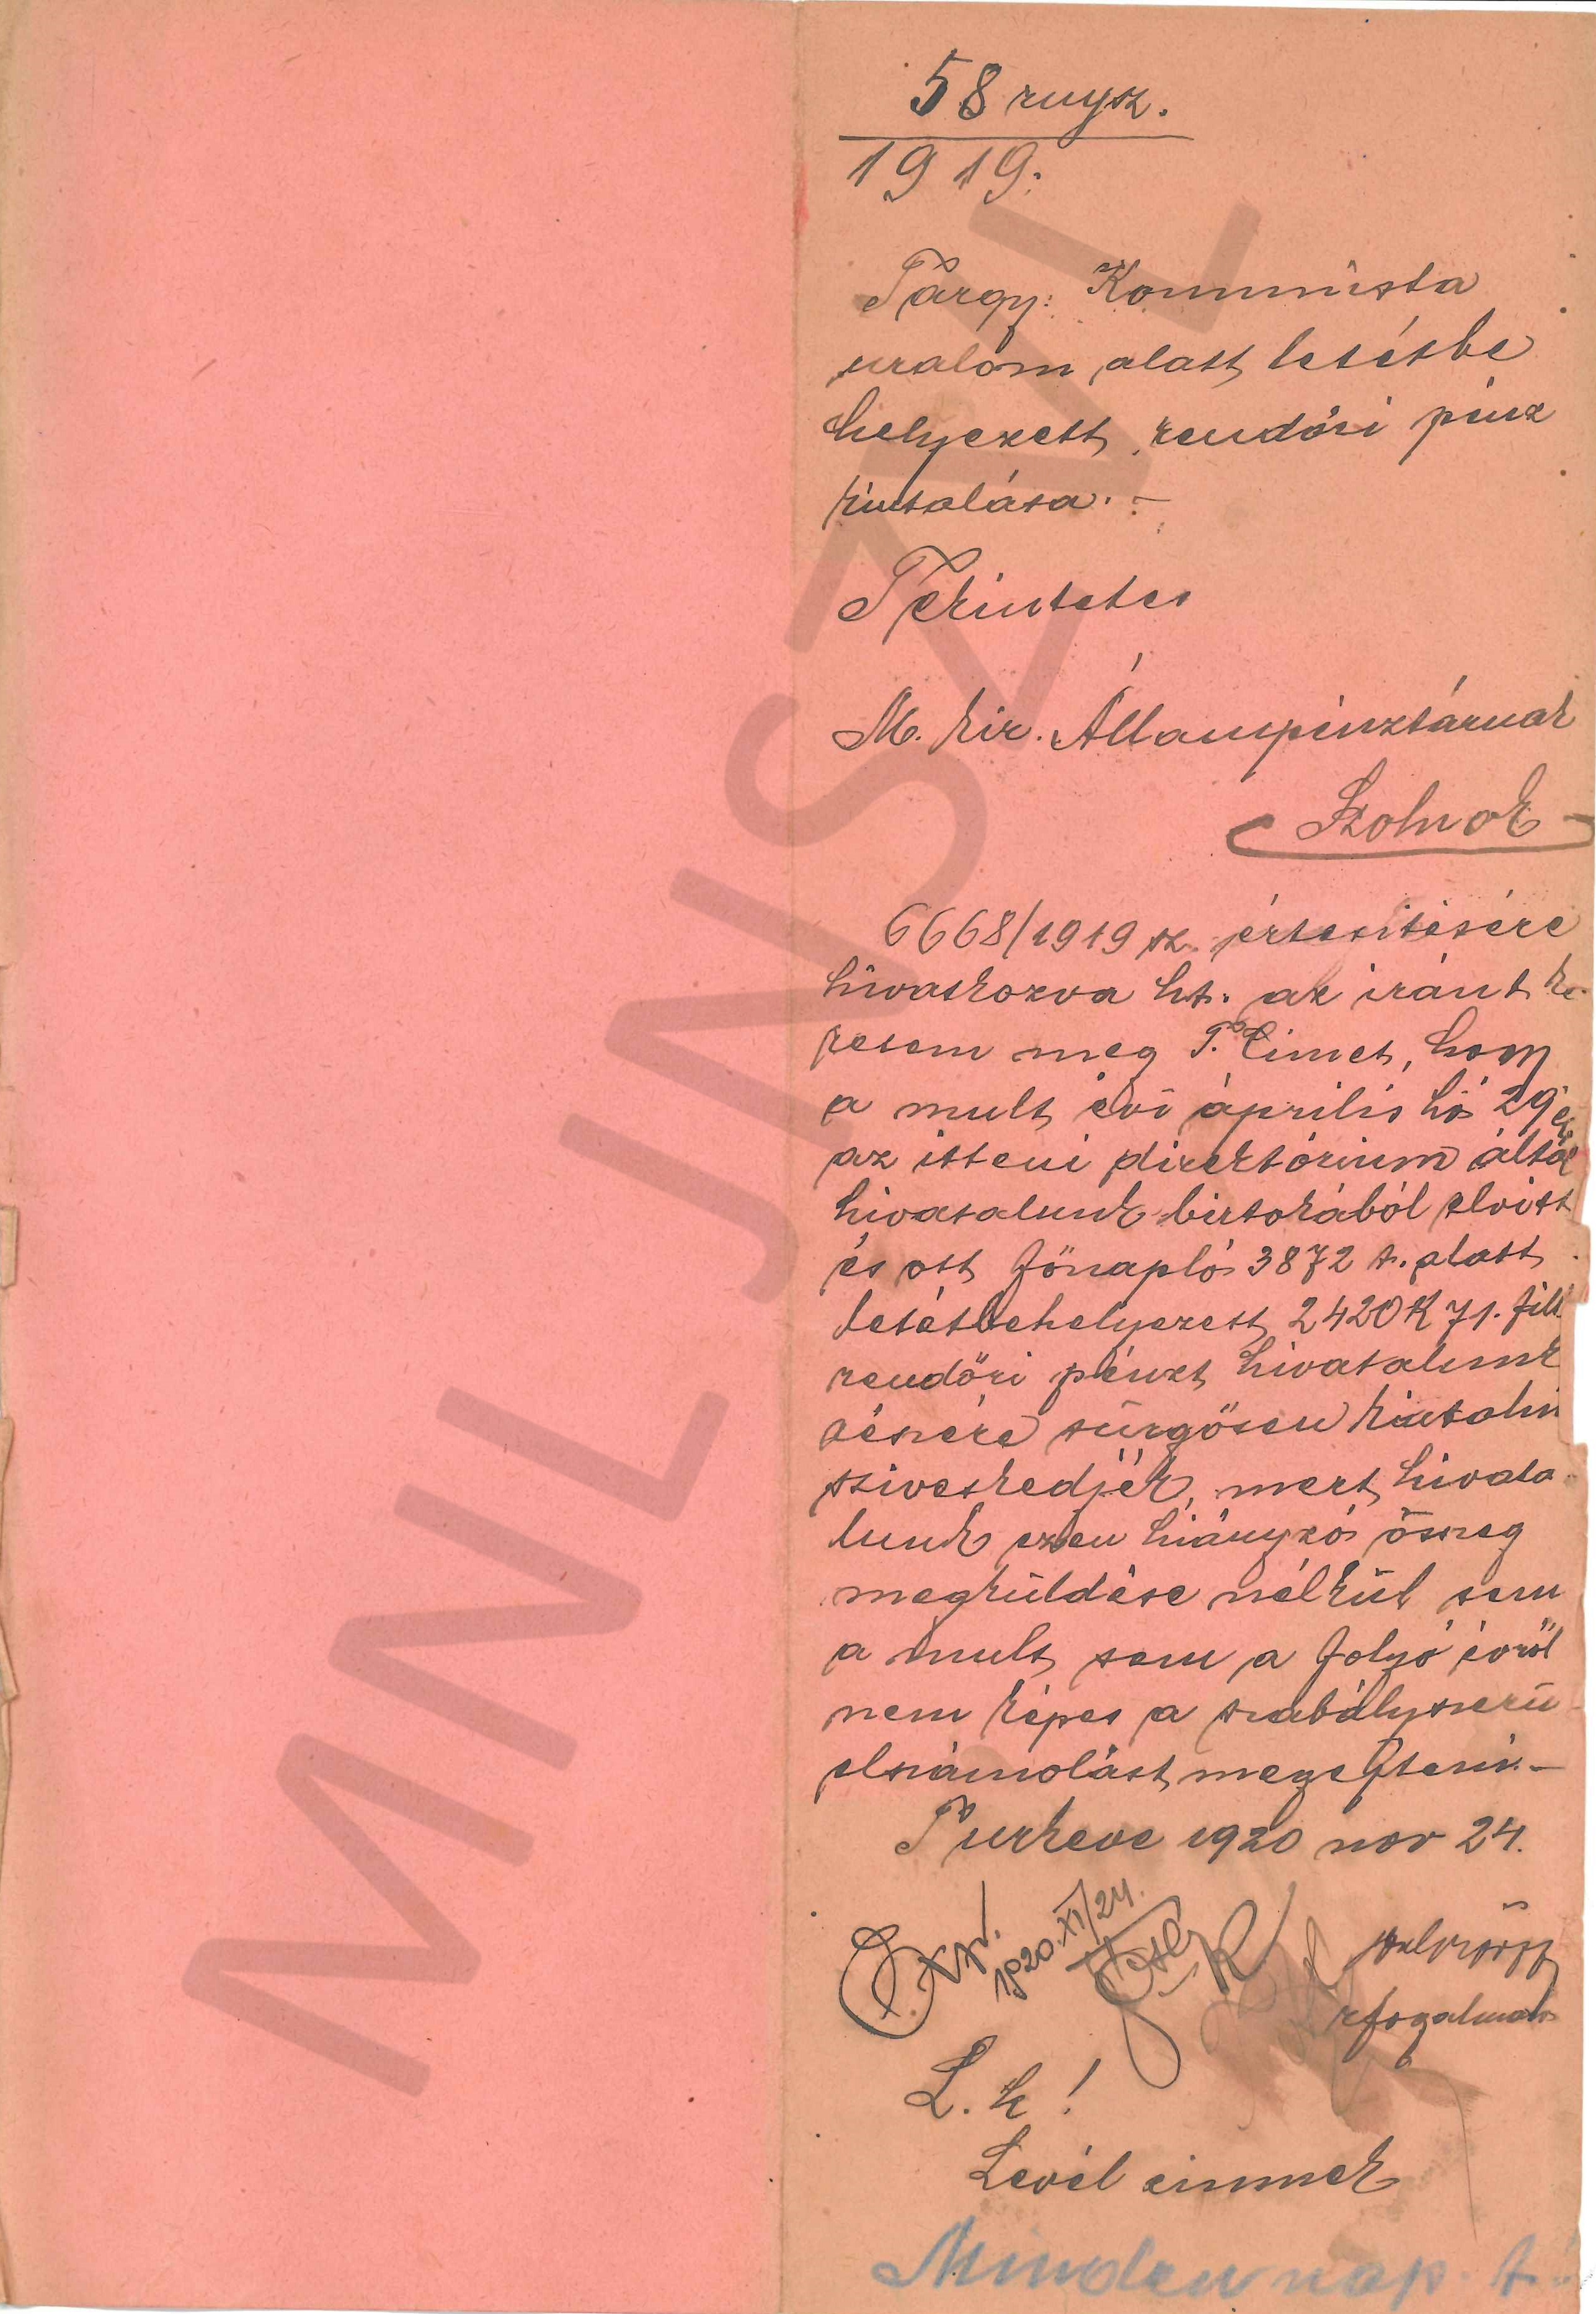 58 rnysz.
1919.
Tárgy: Kommunista
uralom alatt letétbe
helyezett rendőri pénz
kiutalása. –
Tekintetes
M. kir. Állampénztárnak
Szolnok
6668/1919 sz. értesitésére
hivatkozva ht. az iránt ke-
resem meg T. Cimet, hogy
a mult évi április hó 29én
az itteni direktórium által
hivatalunk birtokából elvitt
és ott főnapló 3872 t. alatt
letétbehelyezett 2420 K 71. fill
rendőri pénzt hivatalunk
részére sürgősen kiutalni
sziveskedjék, mert hivata
lunk ezen hiányzó összeg
megküldése nélkül sem
a mult sem a folyó évről
nem képes a szabályszerü
elszámolást megejteni. –
Turkeve 1920 nov 24.
Exp.
1920. XI/24.
rfogalmazó
L. k!
Levél cimnek
Minden nap. t.
MNL JNSZML